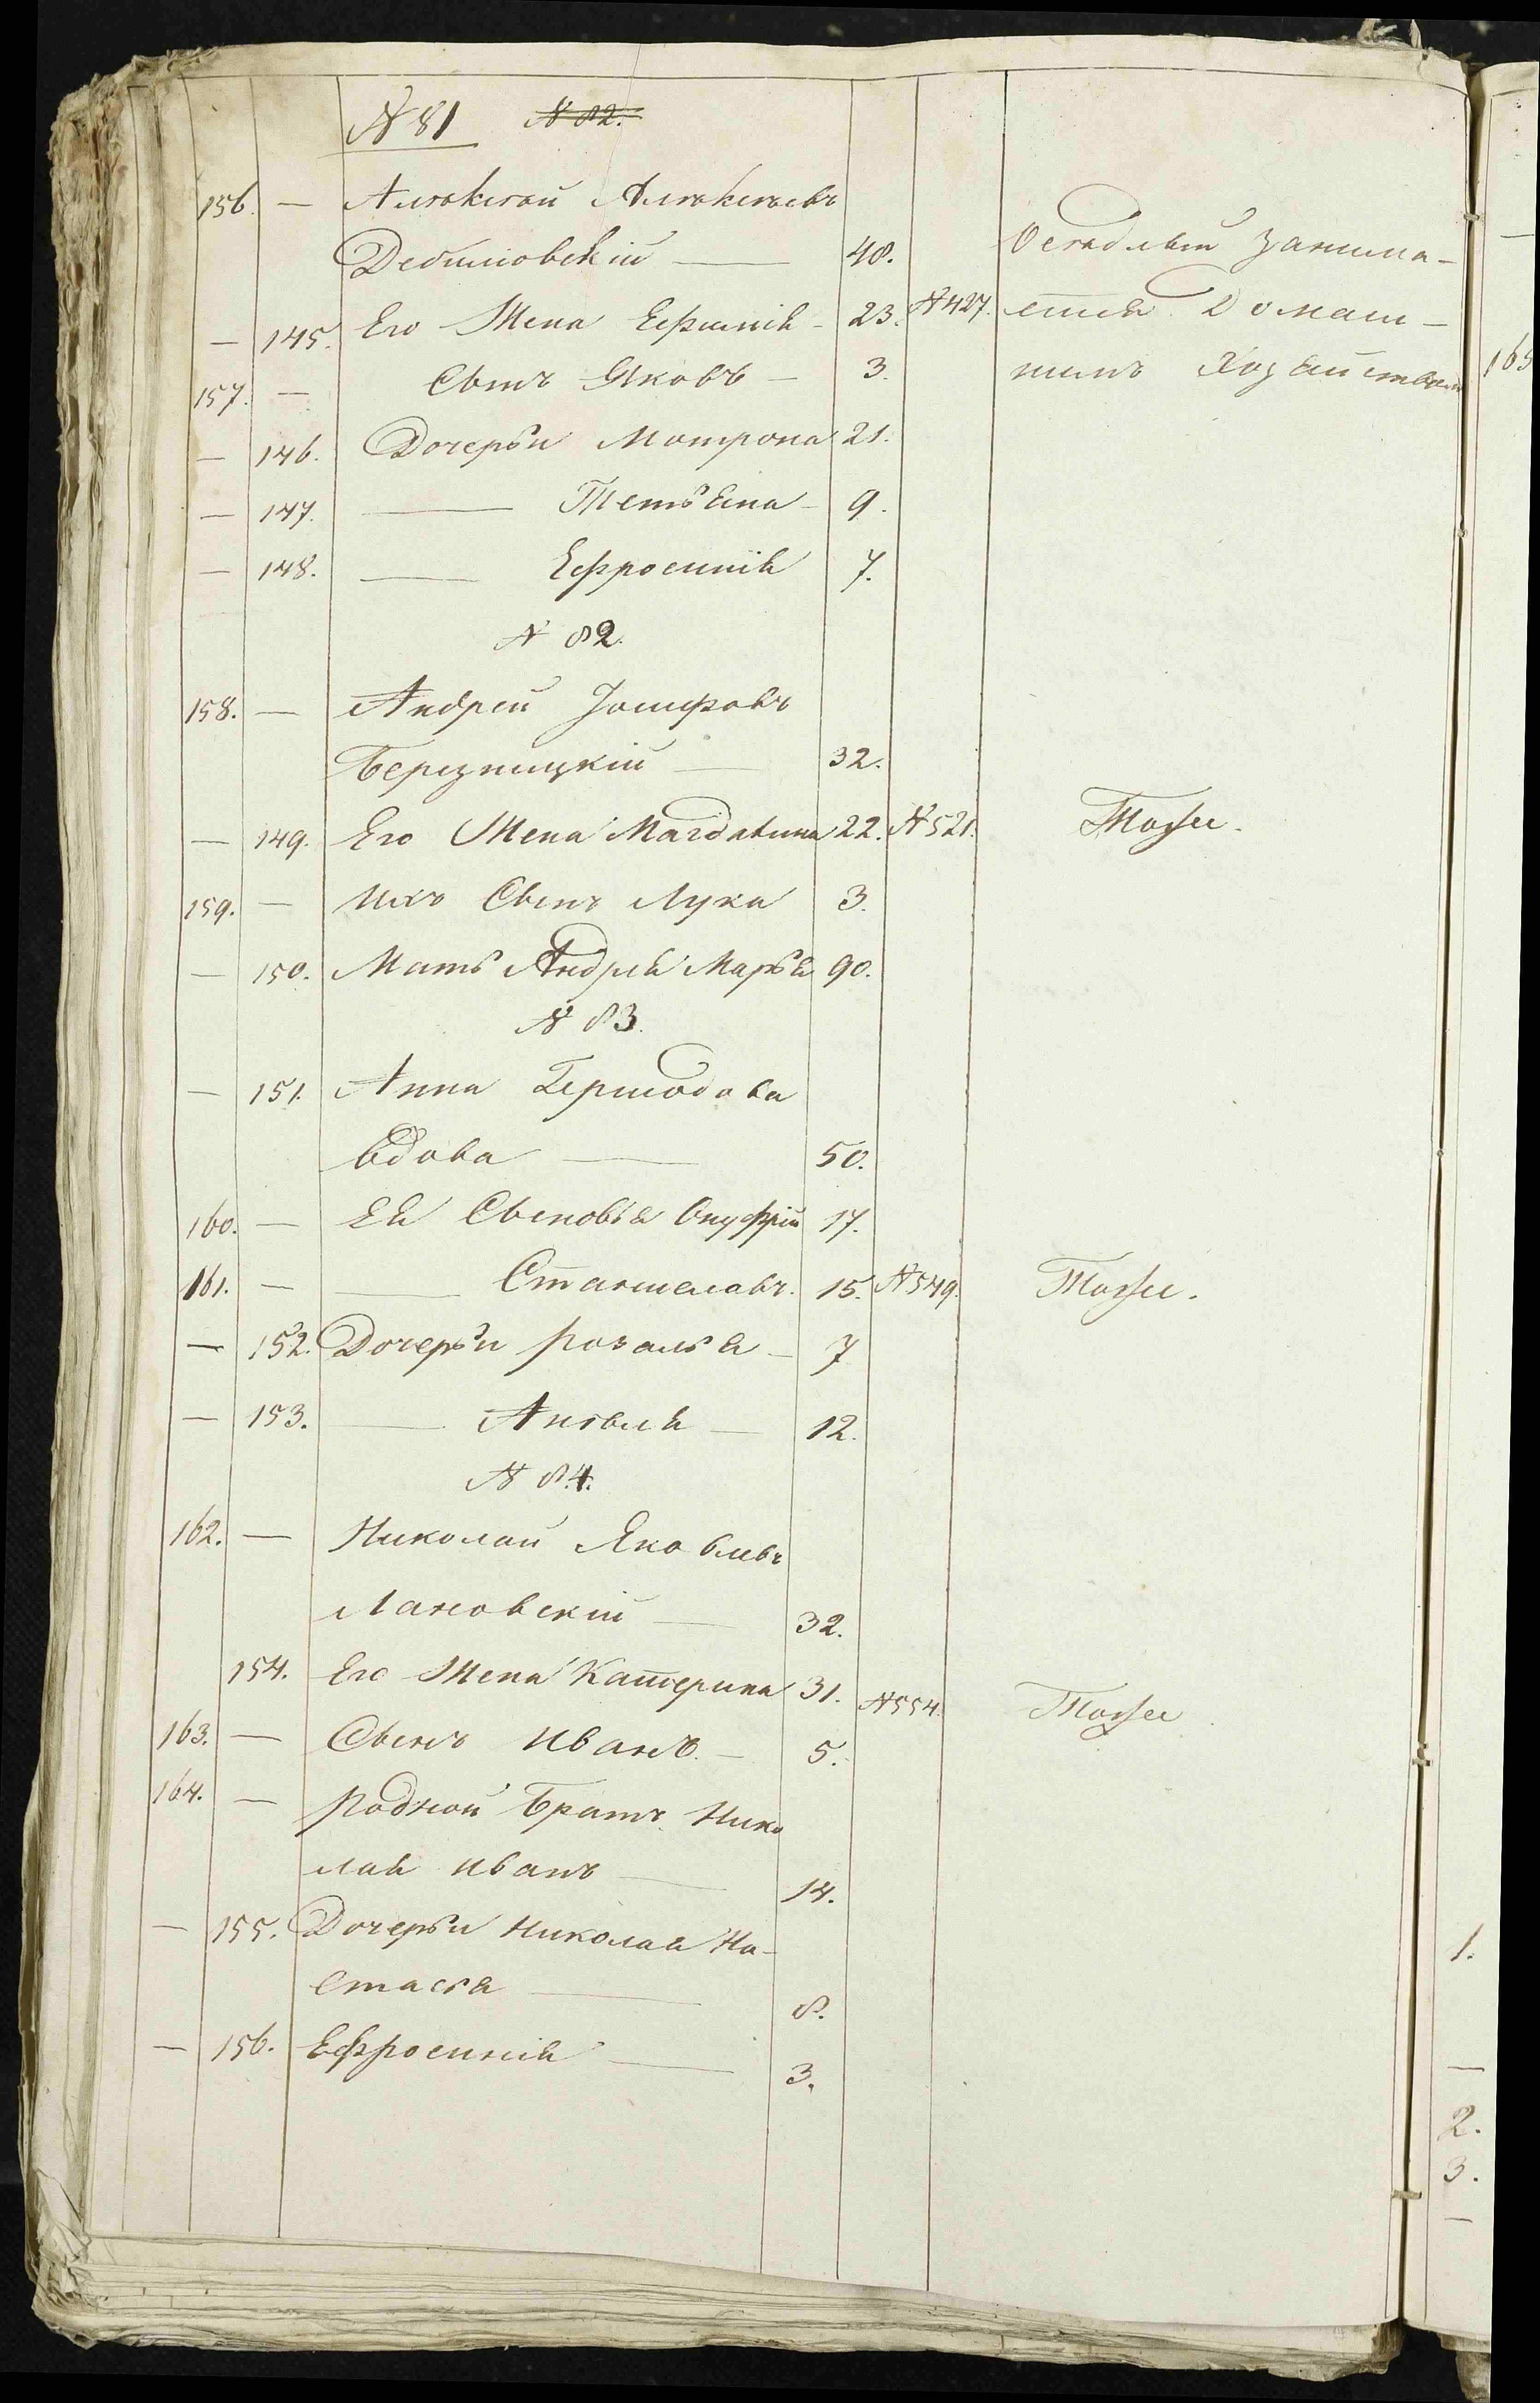 № 81 № 82.
156. — Алексей Алексеевъ
Дебиловскій — 48. Оседлый занима-
— 145. Его Жена Ефимія - 23. №427. ется Домаш-
157. — Сынъ Яковъ — 3. нимъ Хозяйствомъ
— 146. Дочерьи Мотрона 21.
— 147. — Тетьяна - 9.
— 148. — Ефросинія 7.
№ 82.
158. — Андрей Іосифовъ
Березницкій — 32.
— 149. Его Жена Магдалина 22. №521. Тоже.
159. — Ихъ Сынъ Лука 3.
— 150. Мать Андрея Марья 90.
№ 83.
— 151. Анна
вдова — 50.
160. — Ея Сыновья Онуфрій 17.
161. — — Станиславъ. 15. №549. Тоже.
— 152. Дочерьи Розалья — 7
— 153. — Анеля — 12.
№ 84.
162. — Николай Яковлевъ
Лановскій — 32.
154. Его Жена Катерина 31. №554. Тоже
163. — Сынъ Иванъ. — 5.
164. — Родной Братъ Нико
лая Иванъ — 14.
— 155. Дочерьи Николая На-
стася — 8.
— 156. Ефросинія — 3.
165
1.
2.
3.